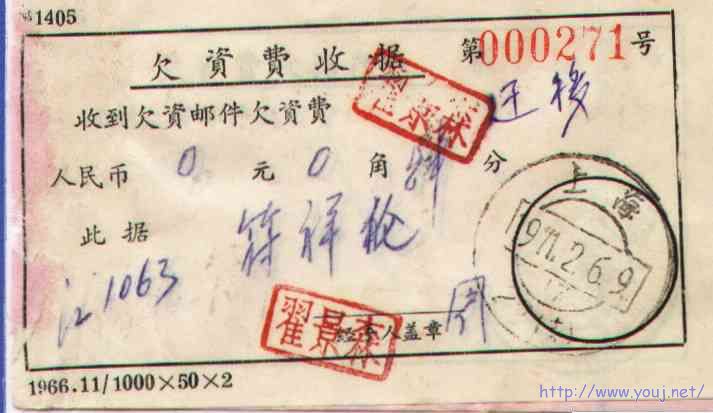 邮1405
欠資費收据
第000271号
翟景森
收到欠資邮件欠資費
迁移
人民币 0 元 0 角 分
上海
此据 符祥
1971.2.6.9
江1063
翟景森
经手人盖章 周
1966.11/1000×50×2
http://www.youj.net/